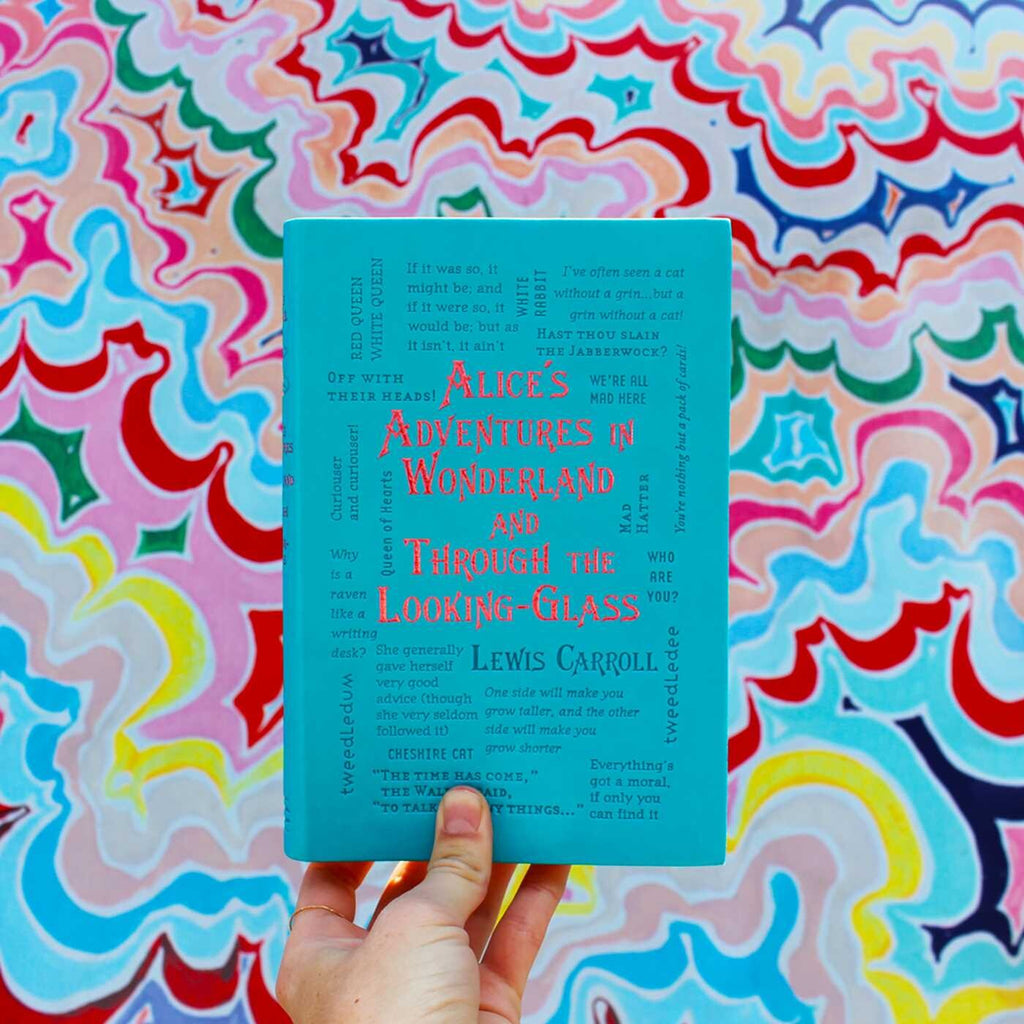 RED QUEEN
WHITE QUEEN
If it was so, it
might be; and
if it were so, it
would be; but as
it isn't, it ain't
WHITE
RABBIT
I've often seen a cat
without a grin...but a
grin without a cat!
HAST THOU SLAIN
THE JABBERWOCK?
OFF WITH
THEIR HEADS!
WE'RE ALL
MAD HERE
You're nothing but a pack of cards!
ALICE'S
ADVENTURES IN
WONDERLAND
AND
THROUGH THE
LOOKING-GLASS
Curiouser
and curiouser!
Queen of Hearts
MAD
HATTER
Why
is a
raven
like a
writing
desk?
WHO
ARE
YOU?
LEWIS CARROLL
She generally
gave herself
very good
advice (though
she very seldom
followed it)
One side will make you
grow taller, and the other
side will make you
grow shorter
tweedLedum
tweedLedee
CHESHIRE CAT
"THE TIME HAS COME,"
THE
"TO THINGS..."
Everything's
got a moral,
if only you
can find it